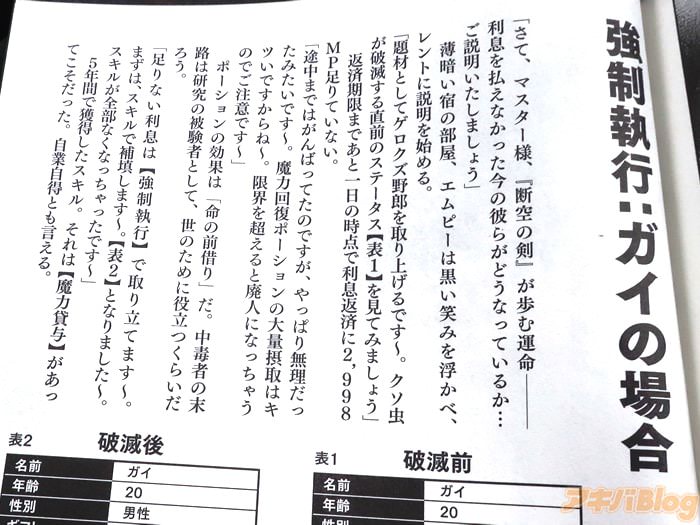 強制執行:ガイの場合
「さて、マスター様、『断空の剣』が歩む運命――
利息を払えなかった今の彼らがどうなっているか…
ご説明いたしましょう」
薄暗い宿の部屋、エムピーは黒い笑みを浮かべ、
レントに説明を始める。
「題材としてゲロクズ野郎を取り上げるです～。クソ虫
が破滅する直前のステータス【表1】を見てみましょう」
返済期限まであと一日の時点で利息返済に2,998
MP足りていない。
「途中まではがんばってたのですが、やっぱり無理だっ
たみたいです～。魔力回復ポーションの大量摂取はキ
ツいですからね～。限界を超えると廃人になっちゃう
のでご注意です～」
ポーションの効果は「命の前借り」だ。中毒者の末
路は研究の被験者として、世のために役立つくらいだ
ろう。
「足りない利息は【強制執行】で取り立てます～。
まずは、スキルで補填します～。【表2】となりました～。
スキルが全部なくなっちゃったです～」
5年間で獲得したスキル。それは【魔力貸与】があっ
てこそだった。自業自得とも言える。
表1
破滅前
名前 ガイ
年齢 20
表2
破滅後
名前 ガイ
年齢 20
性別 男性
アキバBlog